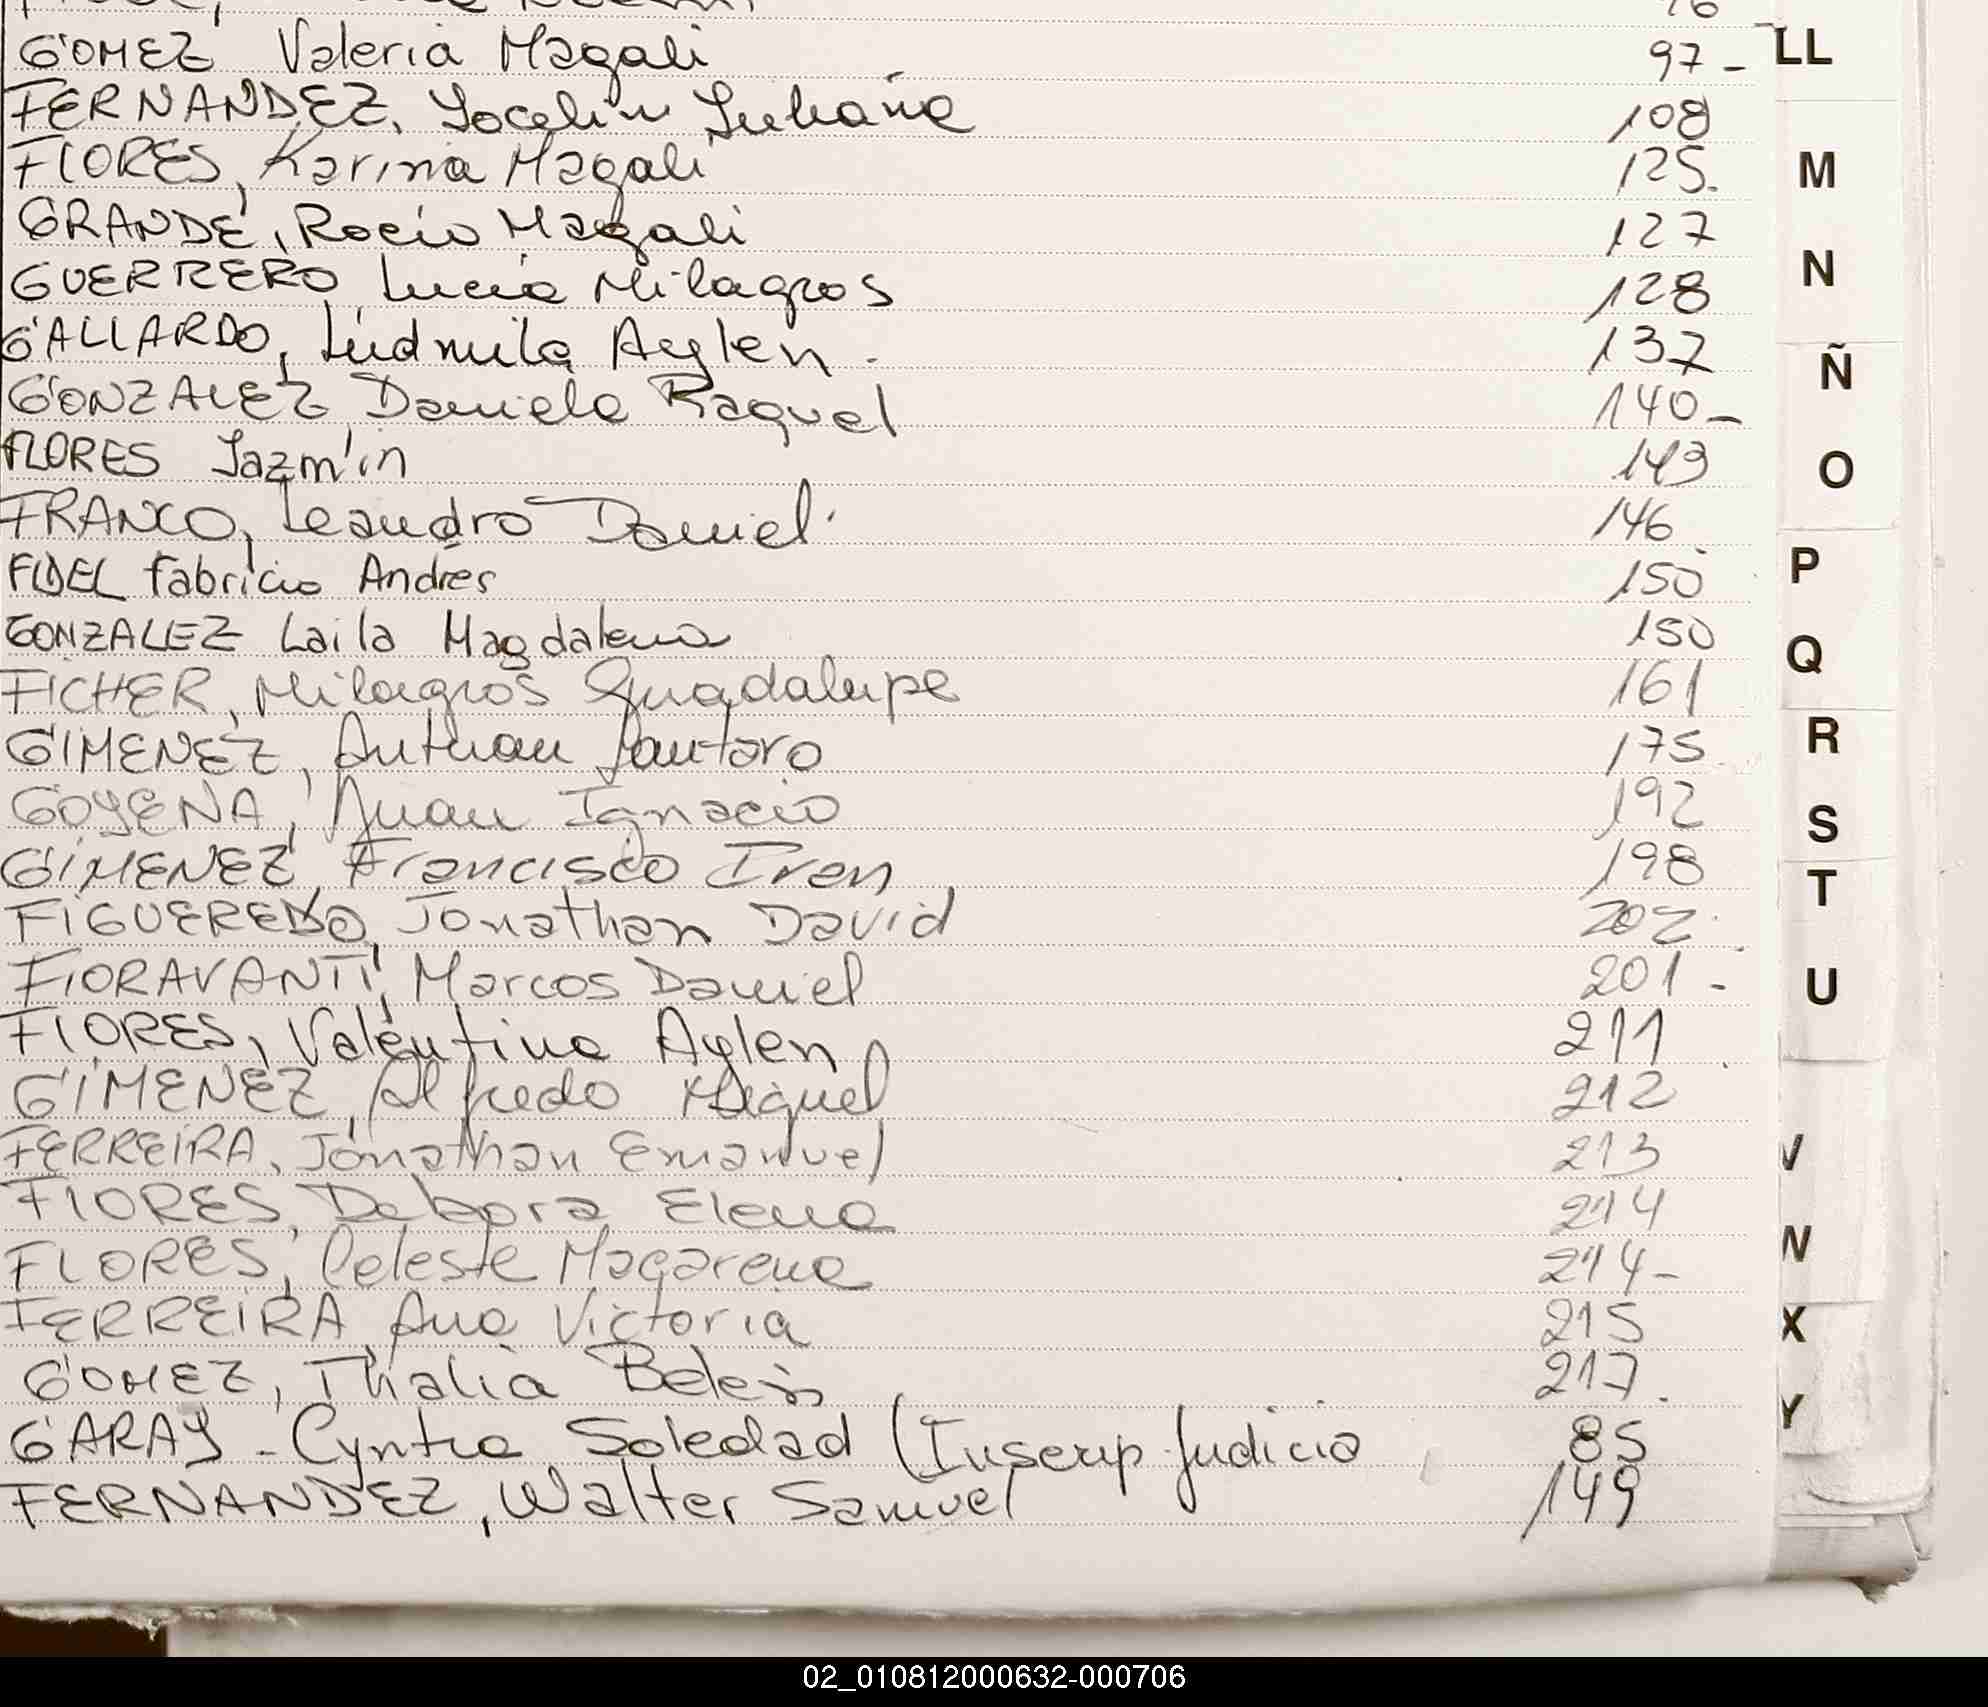 GOMEZ Valeria Magali 97 -
FERNANDEZ, Jocelin Juliana 108
FLORES, Karina Magali 125.
GRANDE, Rocio Magali 127
GUERRERO, Lucia Milagros 128
GALLARDO, Ludmila Aylen. 137
GONZALEZ Daniela Raquel 140 -
FLORES Jazmín 143
FRANCO, Leandro Daniel. 146
FIDEL Fabricio Andres 150
GONZALEZ Laila Magdalena 150
FICHER, Milagros Guadalupe 161
GIMENEZ, Anthuan Lautaro 175
GOYENA, Juan Ignacio 192
GIMENEZ, Francisco Ivan 198
FIGUEREDO, Jonathan David 202
FIORAVANTI, Marcos Daniel 201 -
FLORES, Valentina Aylen 211
GIMENEZ, Alfredo Miguel 212
FERREIRA, Jonathan Emanuel 213
FLORES, Debora Elena 214
FLORES, Celeste Macarena 214 -
FERREIRA, Ana Victoria 215
GOMEZ, Thalia Belen 217.
GARAY - Cyntia Soledad (Inscrip. Judicia 85
FERNANDEZ, Walter Samuel 149
LL
M
N
Ñ
O
P
Q
R
S
T
U
V
W
X
Y
02_010812000632-000706